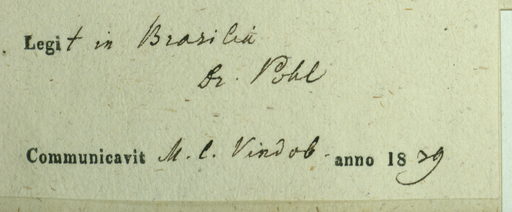 Legit in Brasilia
Dr. Pohl
Communicavit M. C. Vindob. anno 1839